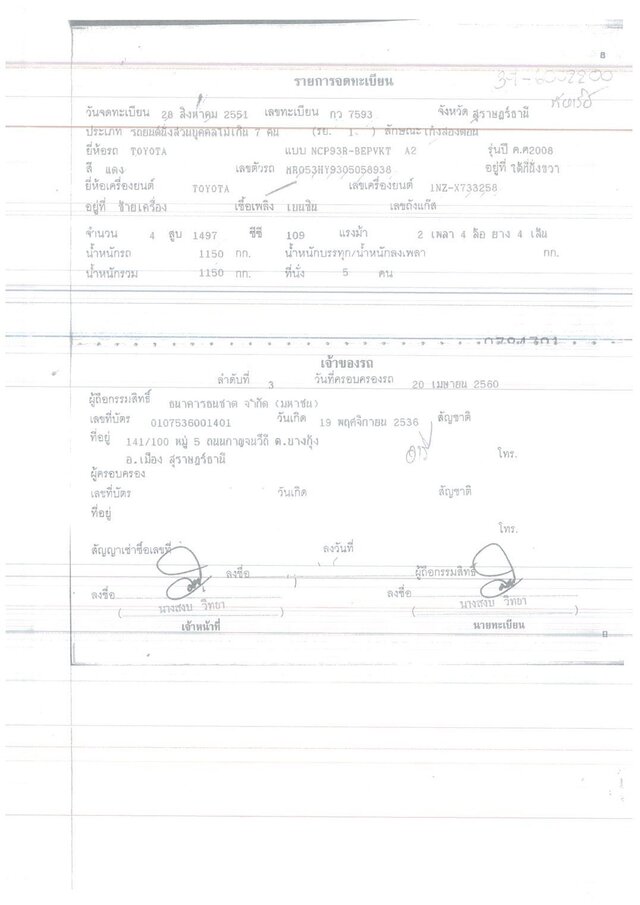 8
รายการจดทะเบียน
วันจดทะเบียน 28 สิงหาคม 2551 เลขทะเบียน กว 7593 จังหวัด สุราษฎร์ธานี
ประเภท รถยนต์นั่งส่วนบุคคลไม่เกิน 7 คน (รย. 1. ) ลักษณะ เก๋งสองตอน
ยี่ห้อรถ TOYOTA แบบ NCP93R-BEPVKT A2 รุ่นปี ค.ศ2008
สี แดง เลขตัวรถ MR053HY9305058938 อยู่ที่ ใต้ที่นั่งขวา
ยี่ห้อเครื่องยนต์ TOYOTA เลขเครื่องยนต์ 1NZ-X733258
อยู่ที่ ซ้ายเครื่อง เชื้อเพลิง เบนซิน เลขถังแก๊ส
จำนวน 4 สูบ 1497 ซีซี 109 แรงม้า 2 เพลา 4 ล้อ ยาง 4 เส้น
น้ำหนักรถ 1150 กก. น้ำหนักบรรทุก/น้ำหนักลงเพลา กก.
น้ำหนักรวม 1150 กก. ที่นั่ง 5 คน
เจ้าของรถ
ลำดับที่ 3 วันที่ครอบครองรถ 20 เมษายน 2560
ผู้ถือกรรมสิทธิ์ ธนาคารธนชาต จำกัด (มหาชน)
เลขที่บัตร 0107536001401 วันเกิด 19 พฤศจิกายน 2536 สัญชาติ
ที่อยู่ 141/100 หมู่ 5 ถนนกาญจนวิถี ต.บางกุ้ง
อ.เมือง สุราษฎร์ธานี โทร.
ผู้ครอบครอง
เลขที่บัตร วันเกิด สัญชาติ
ที่อยู่
โทร.
สัญญาเช่าซื้อเลขที่ ลงวันที่
ลงชื่อ ผู้ถือกรรมสิทธิ์
ลงชื่อ ลงชื่อ
(นางสงบ วิทยา) (นางสงบ วิทยา)
เจ้าหน้าที่ นายทะเบียน